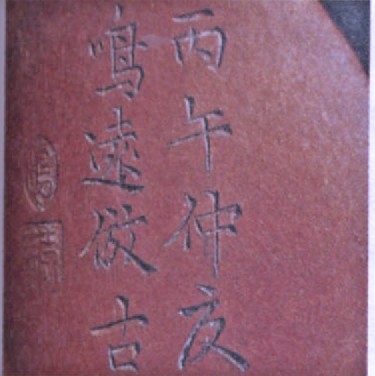 丙午仲夏
鳴遠倣古